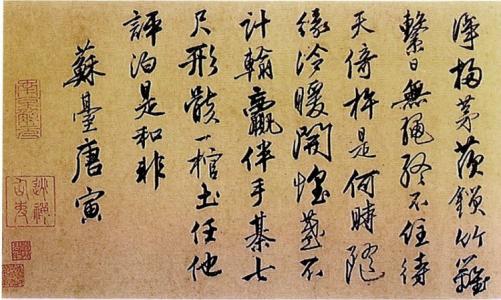 淨掃茅茨鎖竹籬
繫日無繩終不住待
天倚杵是何時隨
緣冷暖開懷盞不
計輸贏伴手棊七
尺形骸一棺土任他
評泊是和非
蘇臺唐寅